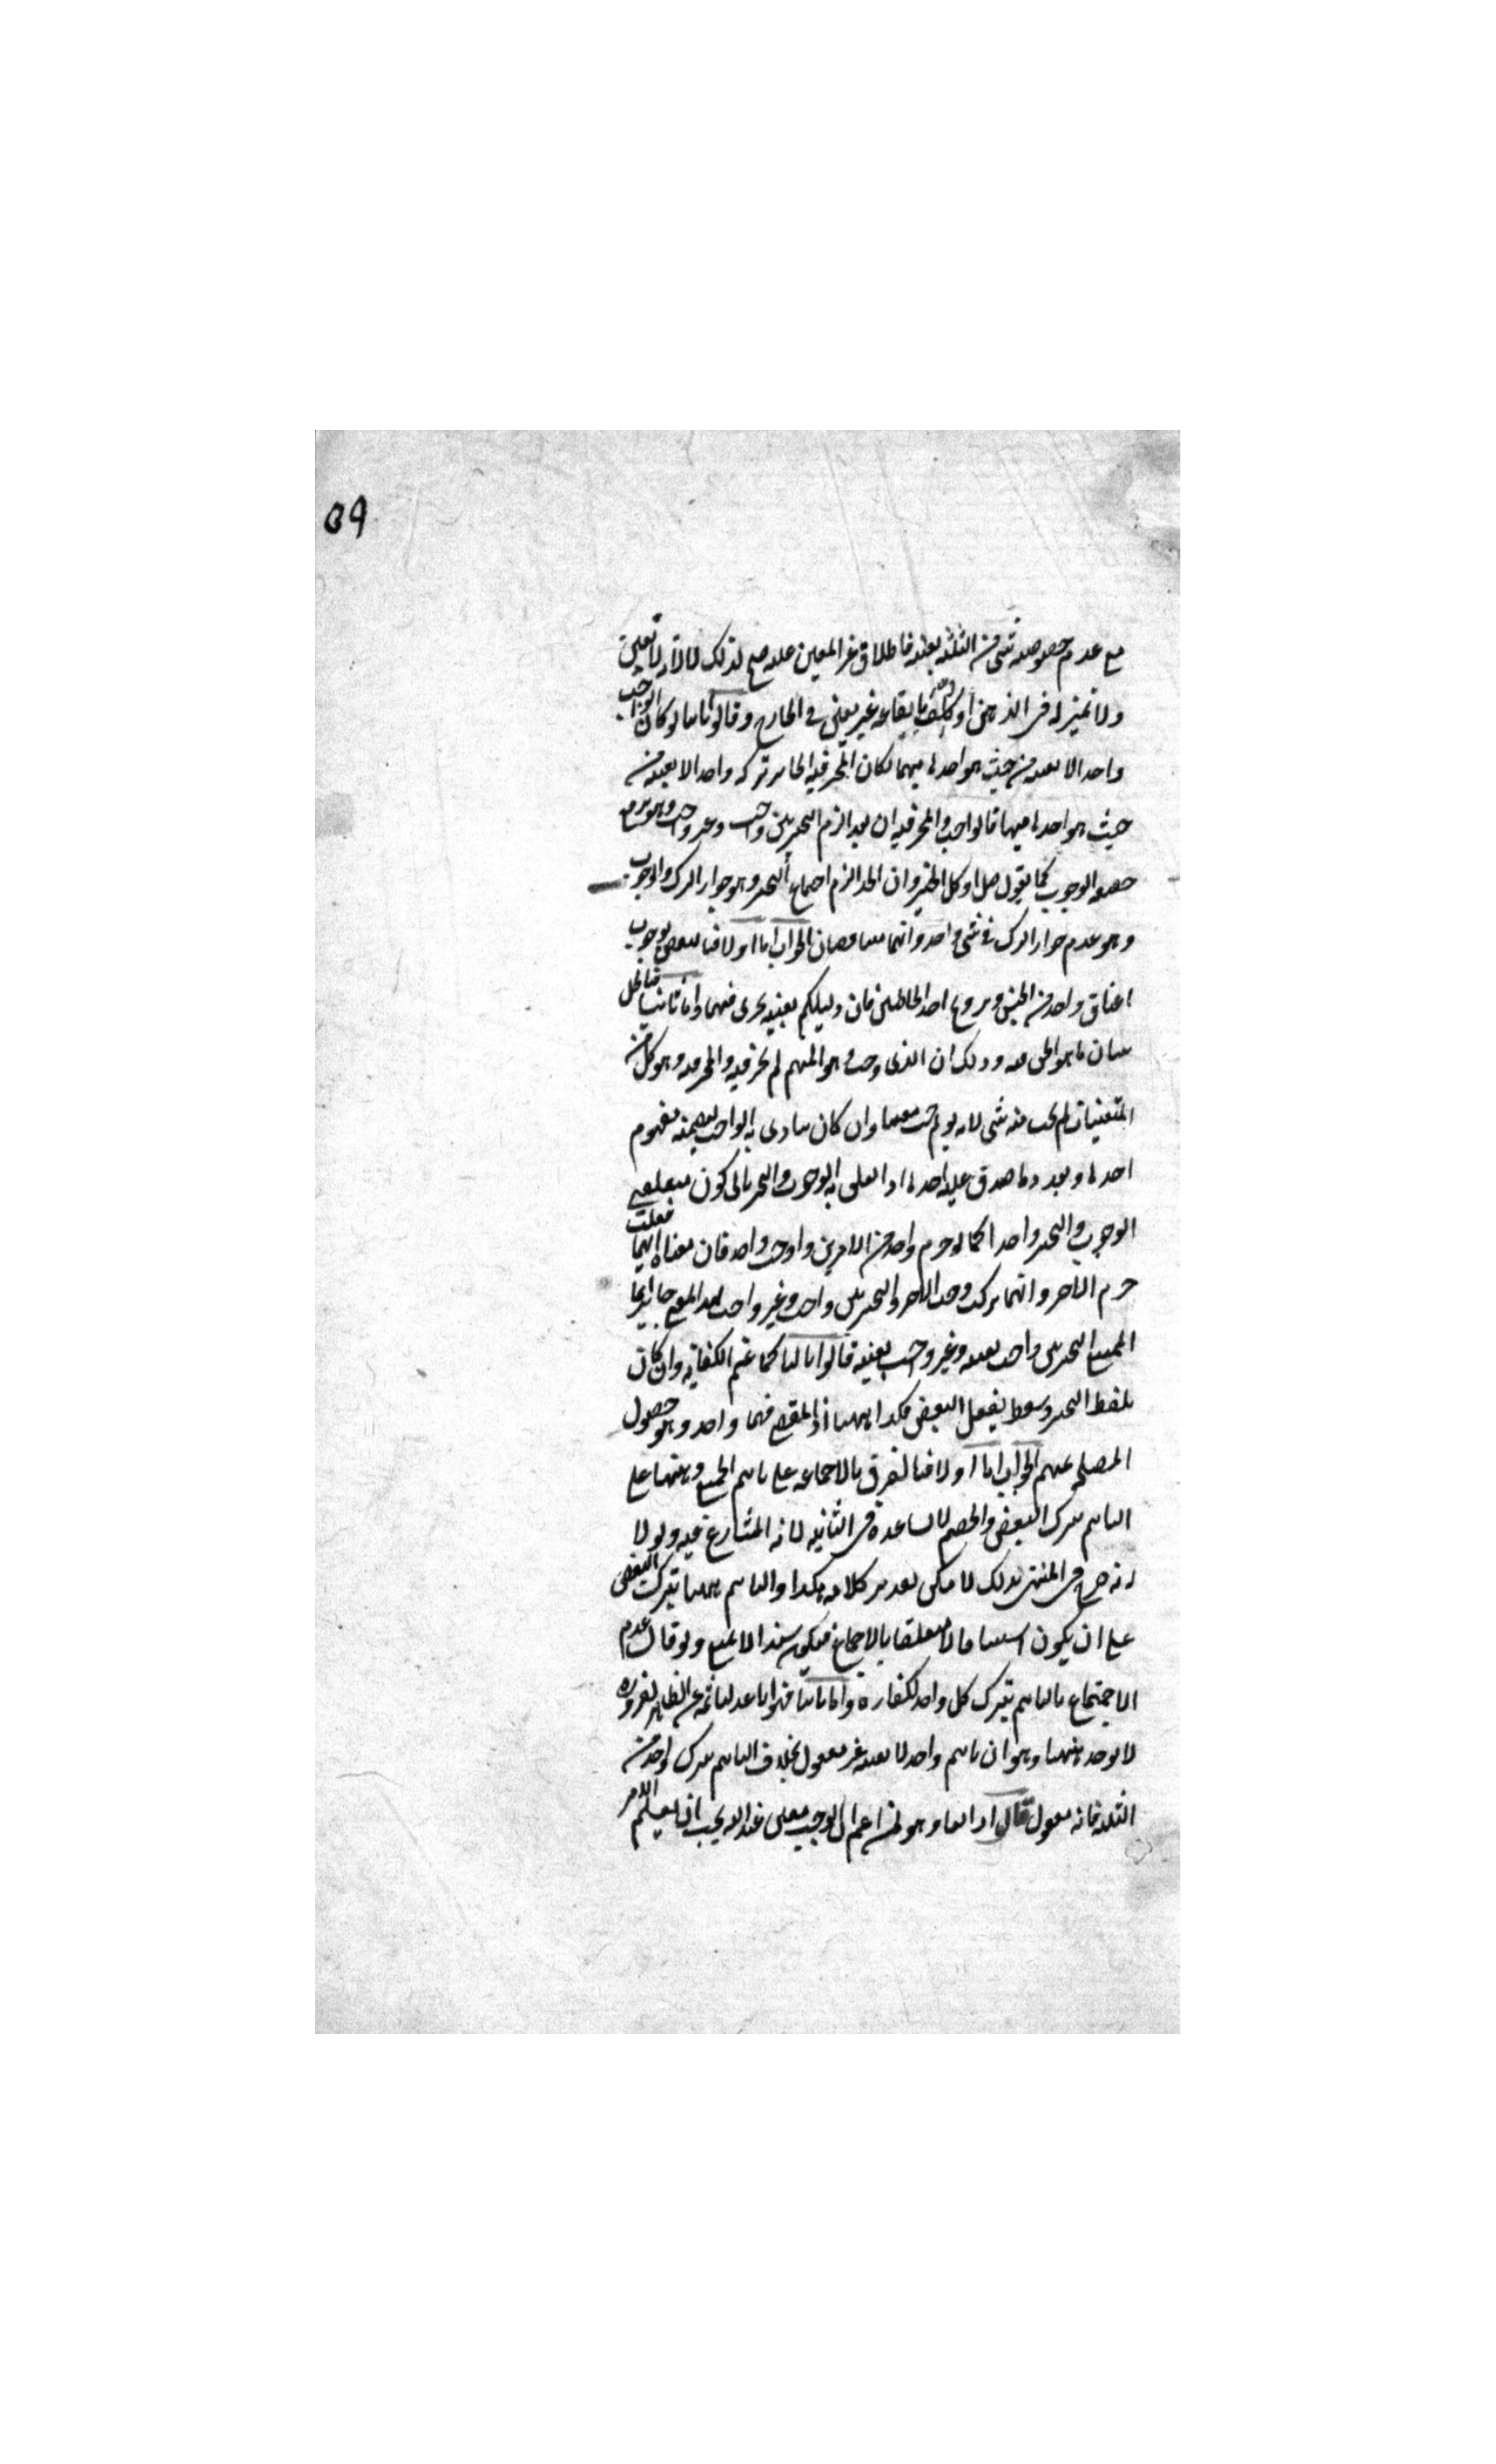 ٥٩
مع عدم خصوصية شئ من الثلثة بعينه فاطلاق غير المعين عليه صح لذلك لا لانه لا تعين
ولا تميز له في الذهن او كلف بايقاعه غير معين في الخارج وقالوا ثانيا لو كان الواجب
واحدا لا بعينه من حيث هو احدها مبهما لكان المخير فيه الجائز تركه واحدا لا بعينه من
حيث هو احدها مبهما فالواجب والمخير فيه ان تعددا لزم التخيير بين واجب وغير واجب وهو يرفع
حقيقة الوجوب كما يقول صل او كل الخبز وان اتحدا لزم اجتماع التخيير وهو جواز الترك والوجوب
وهو عدم جواز الترك في شئ واحد وانهما متناقضان الجواب اما اولا فبالنقض بوجوب
اعتاق واحد من الجنس وتزويج احد الخاطبين فان دليلكم بعينه يجرى فيهما واما ثانيا فبالحل
ببيان ما هو الحق فيه وذلك ان الذى وجب وهو المبهم لم يخير فيه والمخير فيه وهو كل من
المتعينات لم يجب منه شئ لانه لم يوجب معينا وان كان يتأدى به الواجب لتضمنه مفهوم
احدها وتعدد ما صدق عليه احدها اذا تعلق به الوجوب والتخيير يابى كون متعلقى
الوجوب والتخيير واحدا كما لو حرم واحد من الامرين واوجب واحد فان معناه ايهما فعلت
حرم الآخر وايهما تركت وجب الآخر والتخيير بين واجب وغير واجب بهذا المعنى جائز انما
الممتنع التخيير بين واجب بعينه وغير واجب بعينه قالوا ثالثا كما عم الكفاية وان كان
بلفظ التخيير وسقط بفعل البعض فكذا ههنا اذ المقتضى فيهما واحد وهو حصول
المصلحة بمبهم الجواب اما اولا فبالفرق بالاجماع ثمه على تأثيم الجميع وههنا على
التأثيم بترك البعض والخصم لا يساعده في الثانية لانه المتنازع فيه ولولا
انه صرح في المنتهى بذلك لامكن تقدير كلامه هكذا والتأثيم ههنا بترك البعض
على ان يكون استينافا لا متعلقا بالاجماع فيكون سندا لا لمنع ولو قال عدم
الاجتماع بالتأثيم بترك كل واحد لكفاه واما ثانيا فبانا عدلنا ثمه عن الظاهر لضرورة
لا توجد ههنا وهو ان تأثيم واحد لا بعينه غير معقول بخلاف التأثيم بترك واحد من
الثلثة فانه معقول قالوا رابعا وهو لمن زعم ان الواجب معين عند الله يجب ان يعلم الآمر